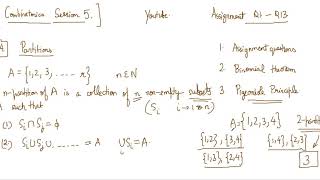 Combinatorics Session 5.]
Youtube
Assignment Q1 - Q13
A Partitions
A = {1, 2, 3, ..... n} n ∈ N
n-partition of A is a collection of n non-empty subsets
(Si i → 1 to n)
A such that
(1) Si ∩ Sj = ϕ
(2) Si ∪ Sj ∪ ...... = A ∪Si = A
i
1 Assignment questions
2 Binomial theorem
3 Pigeonhole Principle
A = {1, 2, 3, 4}
{1,2}, {3,4} {1,4}, {2,3}
{1,3}, {2,4}
3